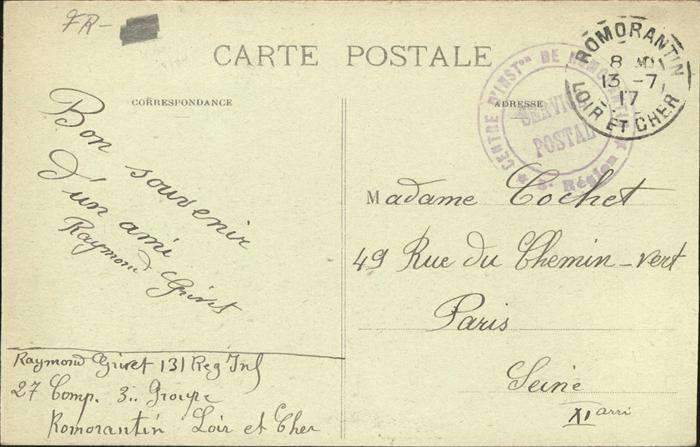 FR-
CARTE POSTALE
CORRESPONDANCE
ADRESSE
ROMORANTIN
8 M
13 - 7
17
LOIR ET CHER
CENTRE D'INSTon DE ROMORANTIN
SERVICE
POSTAL
5e Région
Bon souvenir
d'un ami
Raymond Givet
Madame Cochet
49 Rue du Chemin-vert
Paris
Seine
XI arri
Raymond Givet 131 Reg Inf
27 Comp. 3.. Groupe
Romorantin Loir et Cher